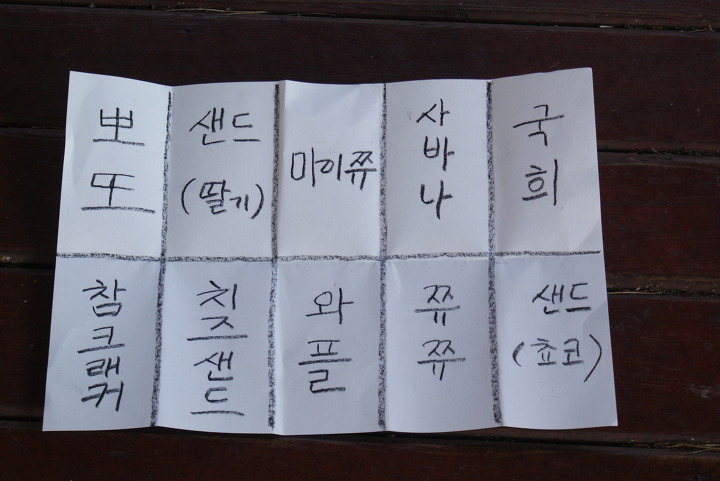 뽀
또
샌드
(딸기)
마이쮸
사
바
나
국
희
참
크
래
커
치
즈
샌
드
와
플
쮸
쮸
샌드
(쵸코)